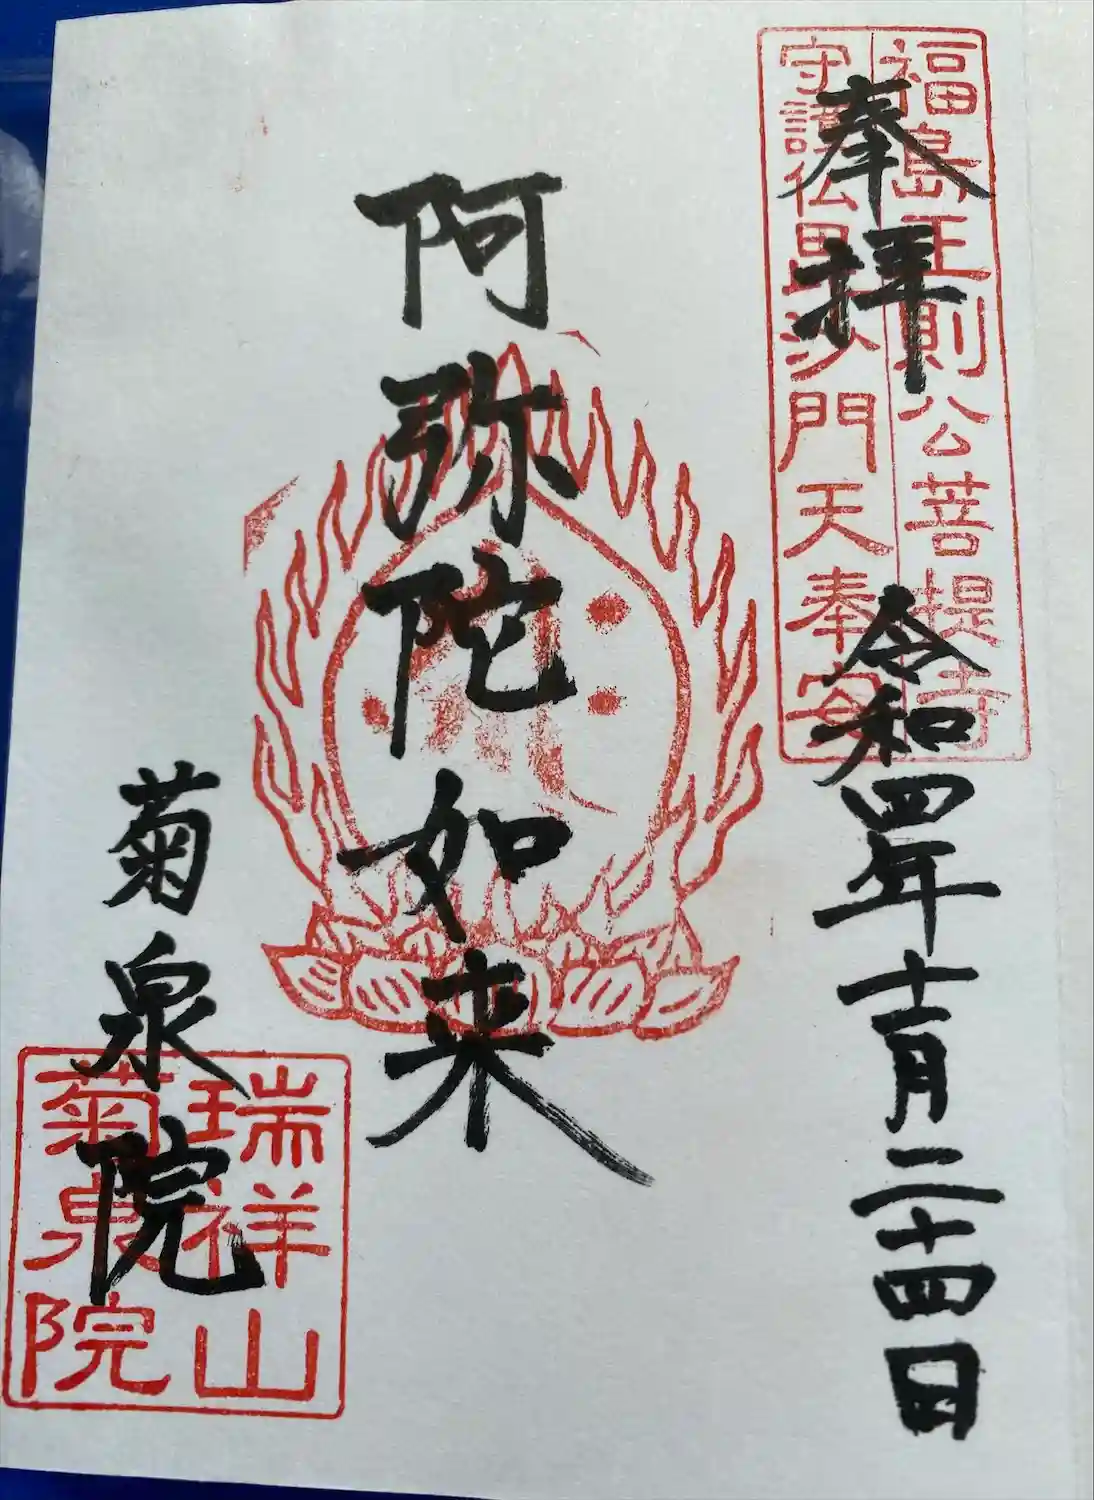 福島正則公菩提寺
守護仏毘沙門天奉安
奉拝
令和四年十一月二十四日
阿弥陀如来
菊泉院
瑞祥山
菊泉院